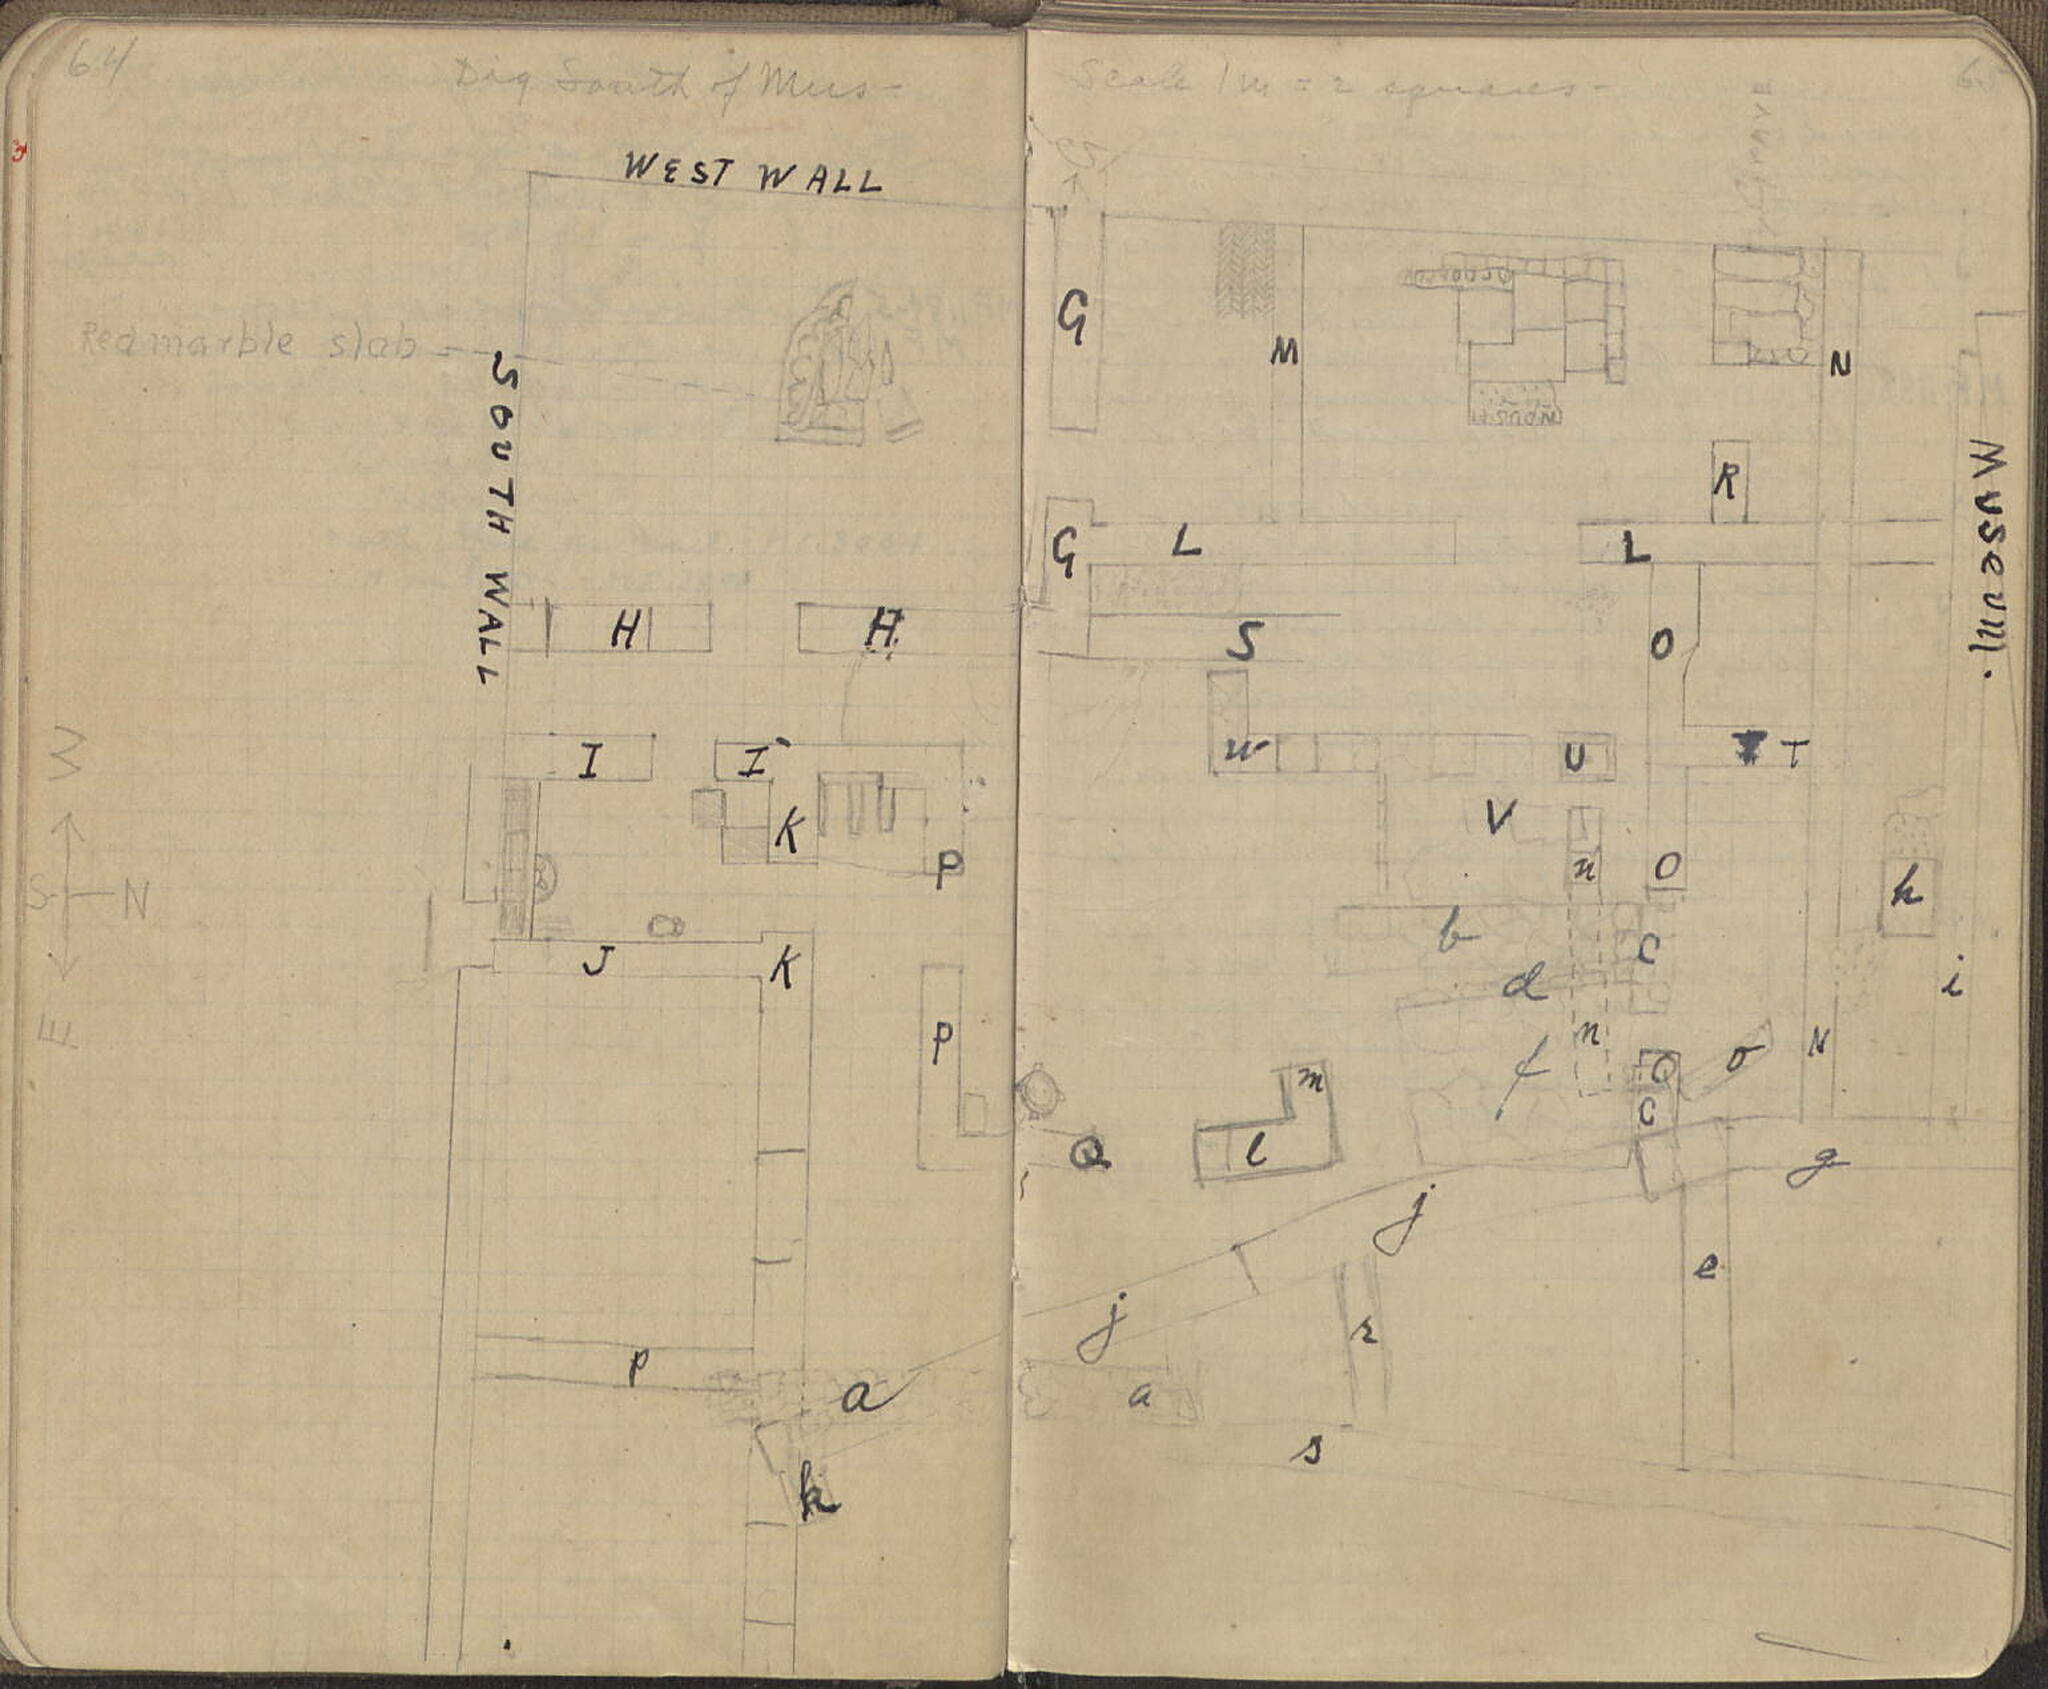 64
Dig South of Mus-
WEST WALL
Red marble slab
SOUTH WALL
H
H
I
I
K
P
W
S N
E
J
K
P
P
a
k
Scale 1 m = 2 squares-
65
GRAVE
G
M
N
R
G
L
L
Museum.
S
O
w
U
T
V
n
O
h
b
c
d
i
n
f
Q
o
N
m
c
Q
l
g
j
e
j
r
a
s